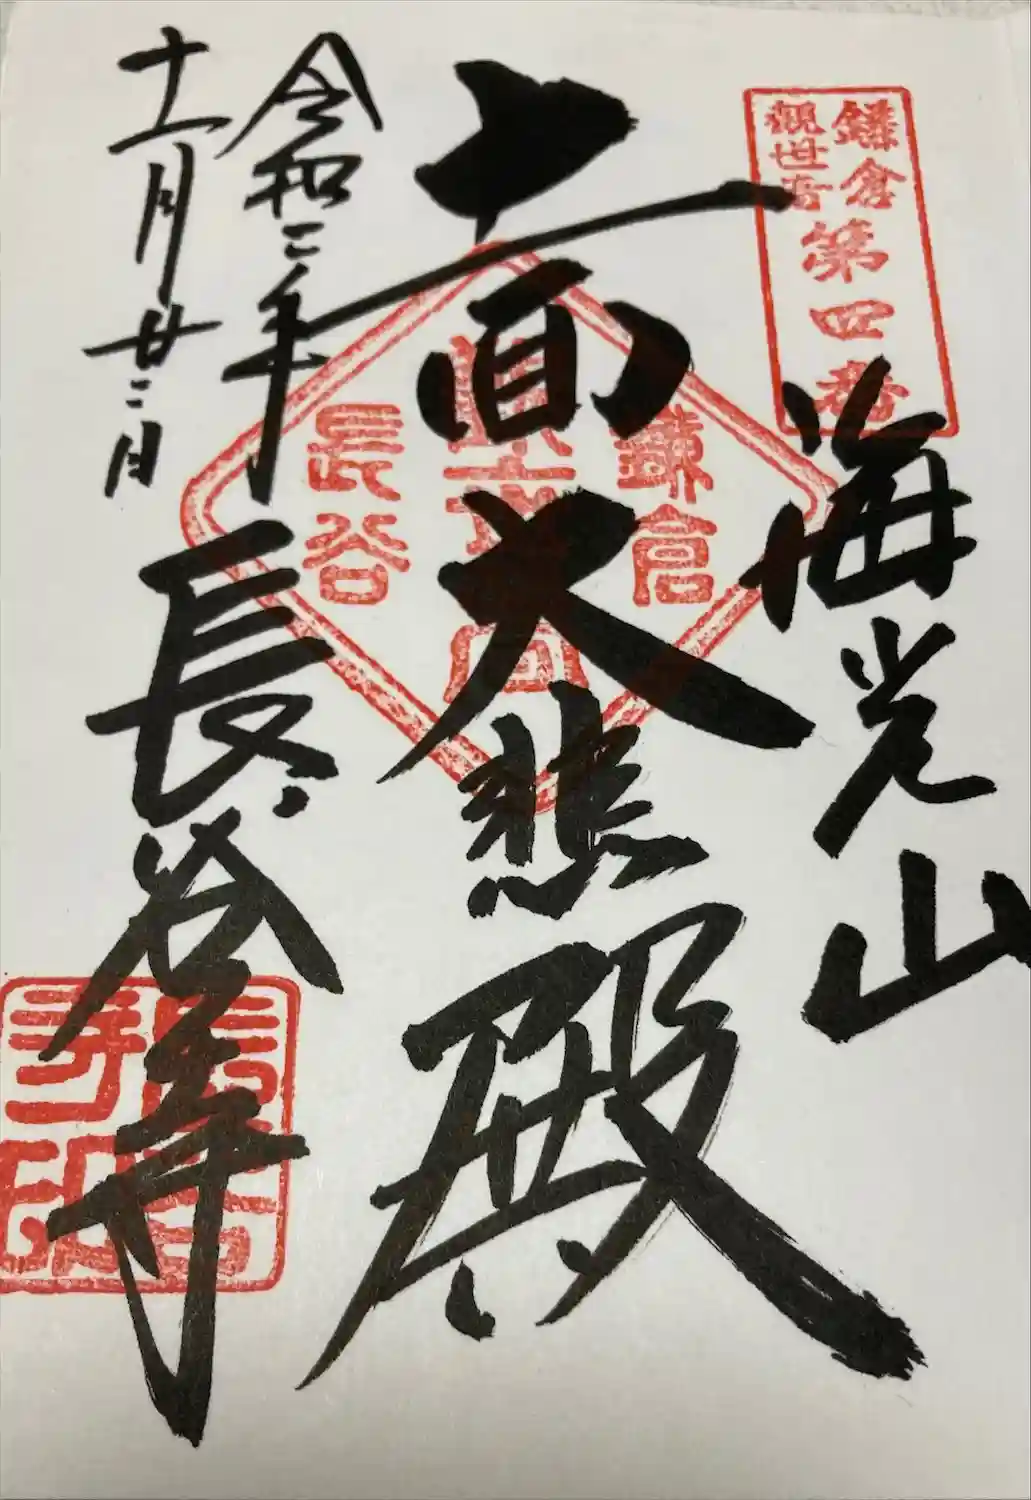 鎌倉
觀世音
第四番
海光山
十一面大悲殿
鎌倉
長谷
令和二年
十一月廿二日
長谷寺
長谷寺印